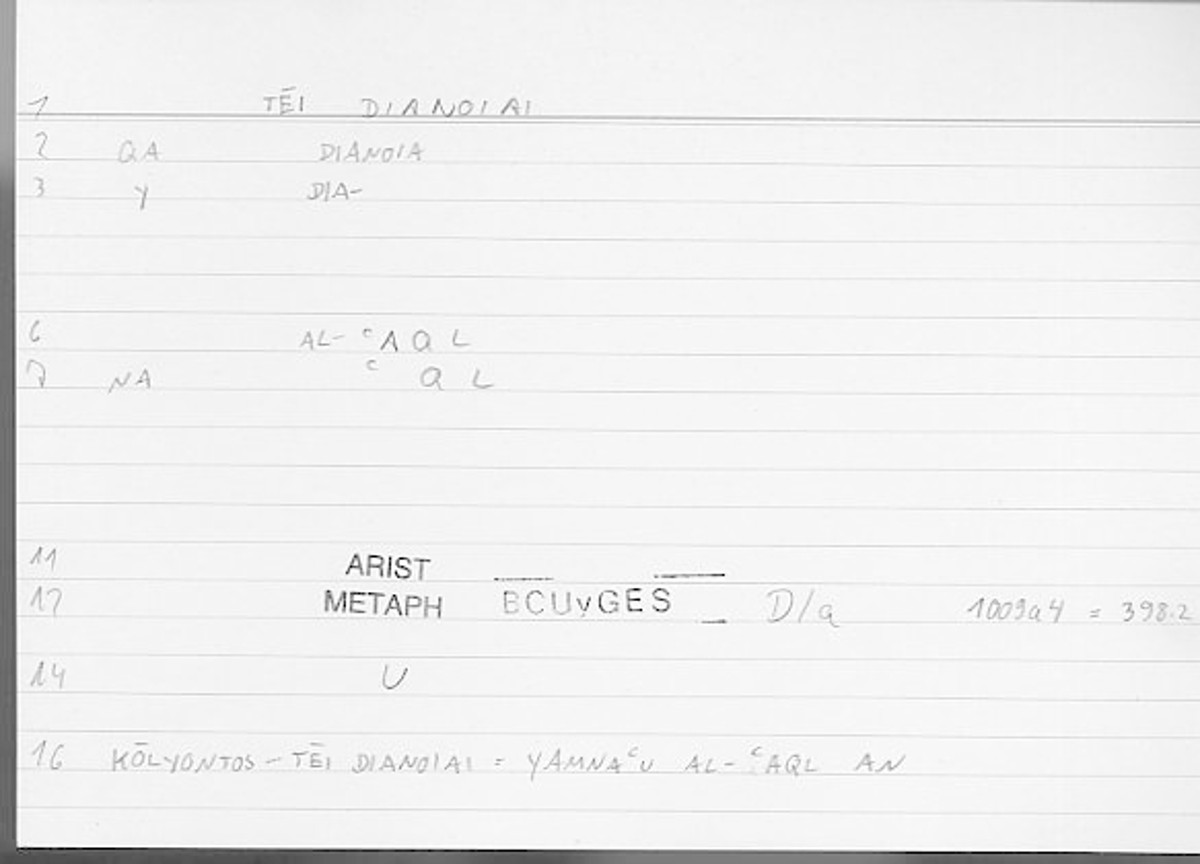 1 TĒI DIANOIAI
2 QA DIANOIA
3 Y DIA-
6 AL-ᶜAQL
7 NA ᶜQL
11 ARIST
12 METAPH BCUvGES D/a 1009a4 = 398.2
14 U
16 KŌLYONTOS - TĒI DIANOIAI = YAMNAᶜU AL-ᶜAQL AN